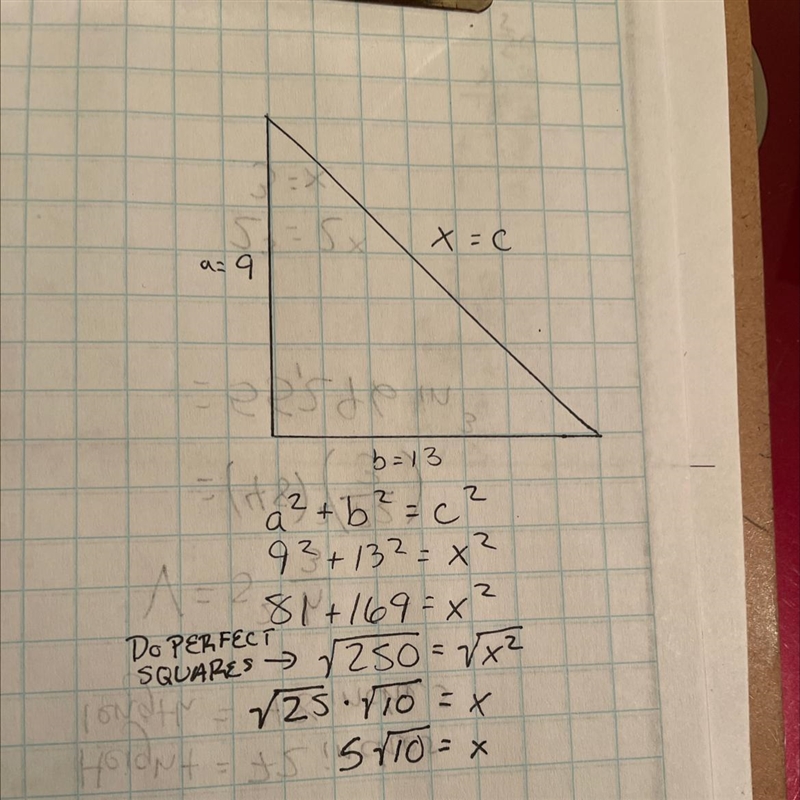 x = c
a = 9
b = 13
a² + b² = c²
9² + 13² = x²
81 + 169 = x²
DO PERFECT
SQUARES → √250 = √x²
√25 · √10 = x
5√10 = x